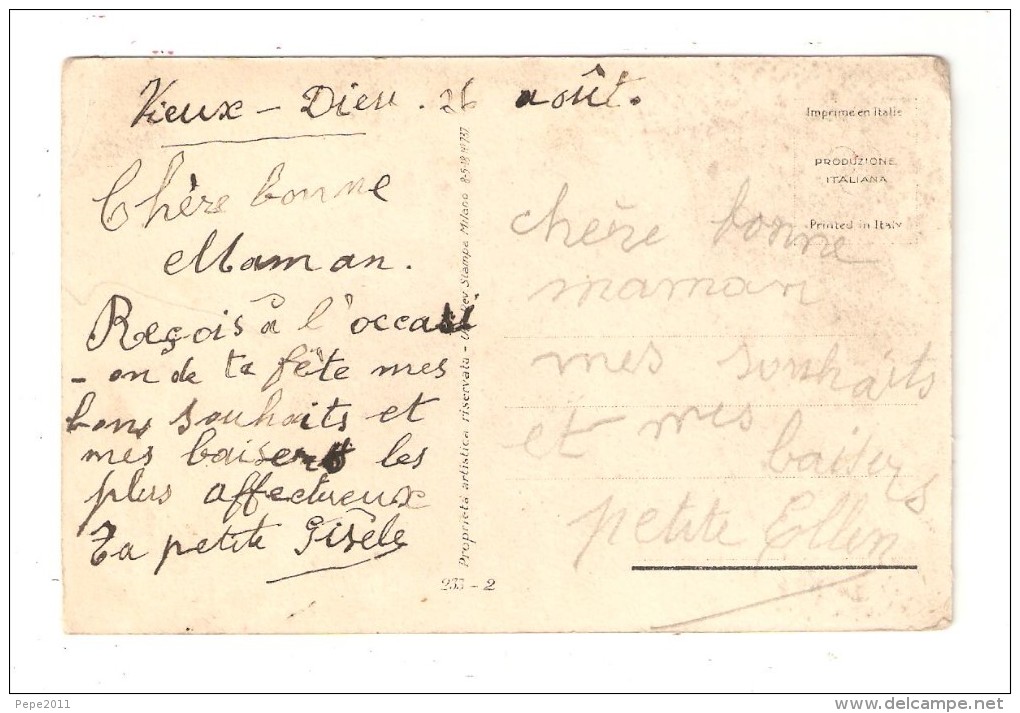 Vieux - Dieu . 26 août.
Chère bonne
Maman.
Reçois à l'occasi
- on de ta fête mes
bons souhaits et
mes baisers les
plus affectueux
Ta petite Gisèle
Proprietà artistica riservata - Stampa Milano
233 - 2
Imprimé en Italie
PRODUZIONE
ITALIANA
Printed in Italy
chère bonne
maman
mes souhaits
et mes
baisers
petite Ellen
Pepe2011
delcampe.net